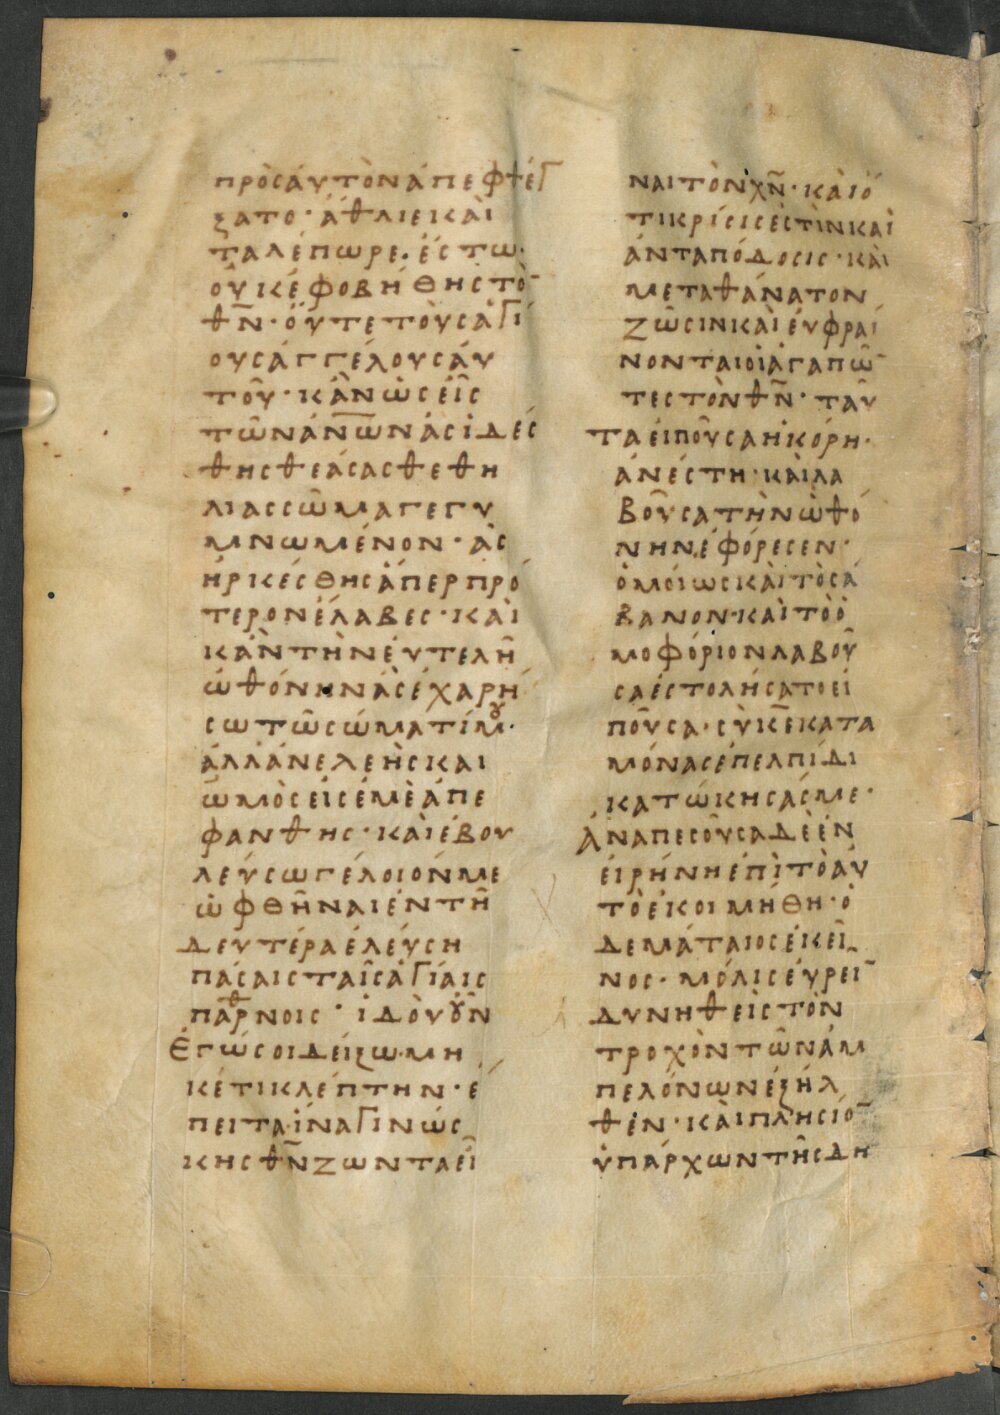 πρὸσἀυτὸνἀπεφθέγ
ξατο· ἄθλιεκὰι
ταλέπωρε. ἔστω·
ὀυκἐφοβήθηστὸ̄
θ̅ν̅· ὄυτετὸυσἁγί
ουσἀγγέλουσἀυ
τοῦ· κἂνὡσἐῖς
τῶνἀν̅ω̅νἀσιδέσ
θηςθεάσασθεθη
λιασσῶμαγεγυ
μνωμένον· ὰς
ἠρκέσθησἅπερπρό
τερονἔλαβες· κὰι
κἂντὴνἐυτελῆ
ὠθόνηνὰσἐχαρή
σωτῶσώματίμου·
ἀλλἀνελεὴςκαι
ὠμὸσεἰσἐμὲἀπε
φάνθης· κὰιἐβου
λεύσωγέλοιόνμε
ὠφθῆναιἐντῆ
δευτέραἐλεύση
πάσαισταῖσἁγίαις
παρθνοις· ἰδὸυοὖν
Ἐγώσοιδείξω.μη
κέτικλέπτην· ἔ
πειταἵναγινώς
κηςθ̅ν̅ζωνταεῖ
ναιτὸνχ̅ν̅· κὰιὅ
τικρίσισἐστὶνκαὶ
ἀνταπόδοσις· κὰι
μεταθάνατον
ζῶσινκὰιἐυφραί
νονταιοἱἀγαπῶ̄
τεστὸνθ̅ν̅· ταῦ
ταἐιποῦσαἡκόρη·
ἀνέστη· κὰιλα
βοῦσατὴνὠθό
νηνἐφόρεσεν·
ὁμοίωςκὰιτὸσά
βανον·κὰιτὸὀ
μοφόριονλαβοῦ
σαἐστολήσατοεἰ
ποῦσα· σὺκ̅ε̅κατα
μόνασἐπελπίδι
κατώκησάσμε·
Ἀναπεσοῦσαδὲἐν
ἐιρήνηἐπὶτὸαὐ
τὸἐκοιμήθη· ὁ
δεμάταιοσἐκεῖ
νος· μόλισἑυρεῖ̄
δυνηθεὶςτὸν
τροχὸντῶνἀμ
πελόνωνἐξῆλ
θεν· κὰιπλησίο̄
ὑπάρχωντῆσδη